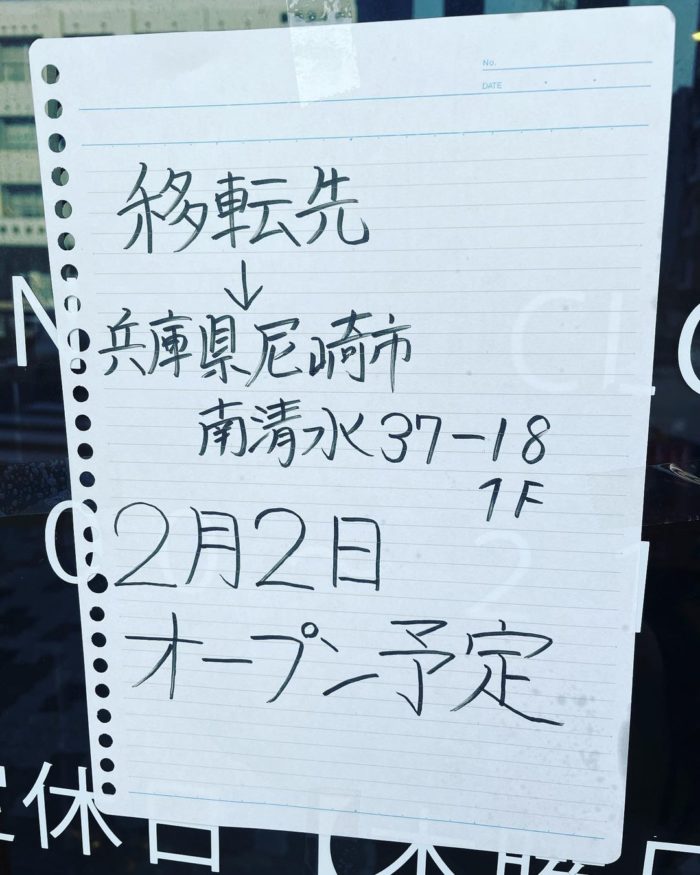 No.
DATE
移転先
↓
兵庫県尼崎市
南清水37-18
1F
2月2日
オープン予定
定休日【木曜日